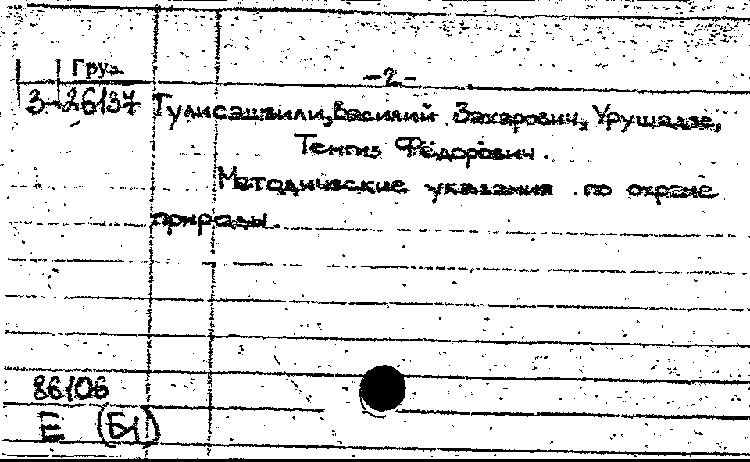 Груз.
-2-
3-26137 Гулисашвили, Василий Захарович, Урушадзе,
Тенгиз Фёдорович.
Методические указания по охране
природы.
86106
III (Б1)